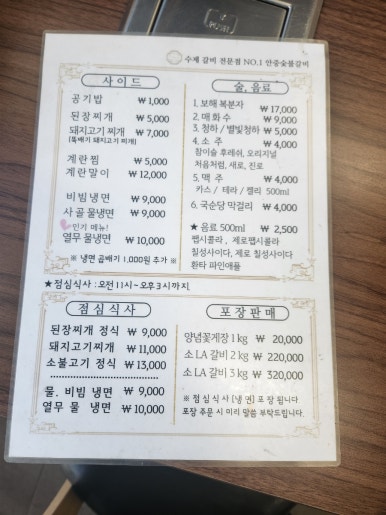 수제 갈비 전문점 NO.1 안중숯불갈비
사이드
공기밥 ₩1,000
된장찌개 ₩5,000
돼지고기 찌개 ₩7,000
(뚝배기 돼지고기 찌개)
계란찜 ₩5,000
계란말이 ₩12,000
비빔냉면 ₩9,000
사골 물냉면 ₩9,000
인기 메뉴!
열무 물냉면 ₩10,000
※ 냉면 곱배기 1,000원 추가 ※
술, 음료
1. 보해 복분자 ₩17,000
2. 매화수 ₩9,000
3. 청하 / 별빛청하 ₩5,000
4. 소주 ₩4,000
참이슬 후레쉬, 오리지널
처음처럼, 새로, 진로
5. 맥주 ₩4,000
카스 / 테라 / 켈리 500ml
6. 국순당 막걸리 ₩4,000
★ 음료 500ml ₩2,500
펩시콜라, 제로펩시콜라
칠성사이다, 제로 칠성사이다
환타 파인애플
★점심식사 : 오전 11시~오후3시까지
점심식사
된장찌개 정식 ₩9,000
돼지고기찌개 ₩11,000
소불고기 정식 ₩13,000
물. 비빔 냉면 ₩9,000
열무 물 냉면 ₩10,000
포장판매
양념꽃게장 1kg ₩20,000
소 LA 갈비 2kg ₩220,000
소 LA 갈비 3kg ₩320,000
※ 점심식사 [냉면] 포장 됩니다
포장 주문 시 미리 말씀 부탁드립니다.